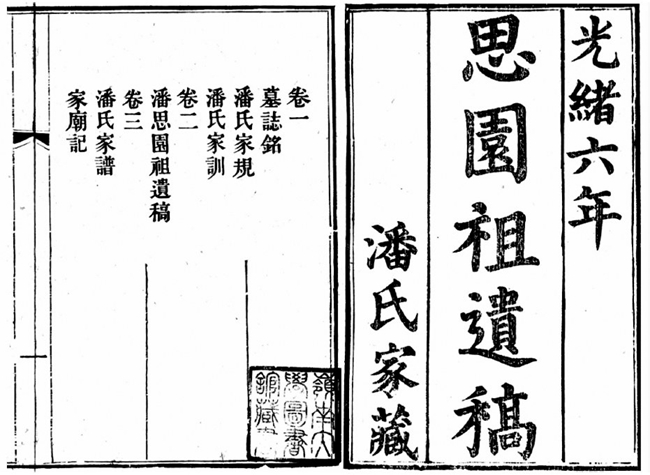 光緒六年
思園祖遺稿
潘氏家藏
卷一
墓誌銘
潘氏家規
潘氏家訓
卷二
潘思園祖遺稿
卷三
潘氏家譜
家廟記
嶺南大
學圖書
館藏書